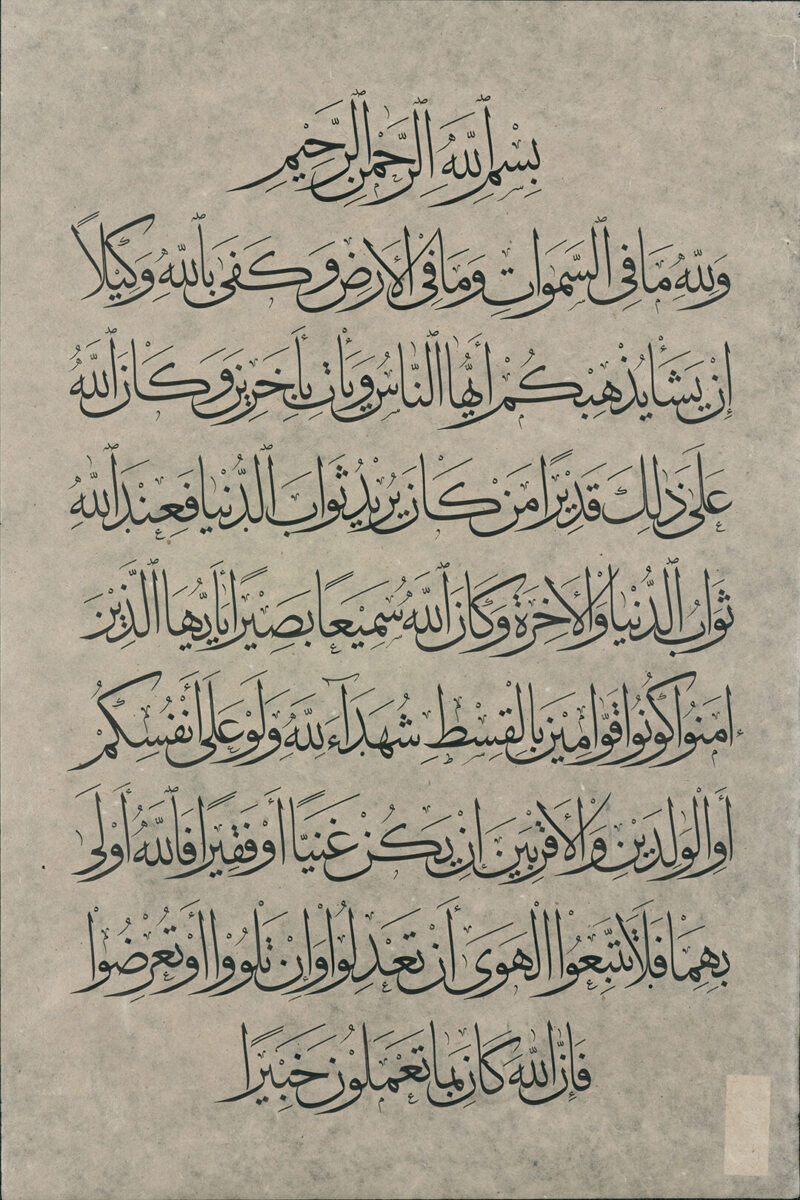 بِسْمِ اللَّهِ الرَّحْمٰنِ الرَّحِيمِ
وَلِلَّهِ مَا فِي السَّمَوَاتِ وَمَا فِي الْأَرْضِ وَكَفَى بِاللَّهِ وَكِيْلًا
إِنْ يَشَأْ يُذْهِبْكُمْ أَيُّهَا النَّاسُ وَيَأْتِ بِأَخَرِيْنَ وَكَانَ اللَّهُ
عَلَى ذٰلِكَ قَدِيْرًا مَنْ كَانَ يُرِيْدُ ثَوَابَ الدُّنْيَا فَعِنْدَ اللَّهِ
ثَوَابُ الدُّنْيَا وَالْأَخِرَةِ وَكَانَ اللَّهُ سَمِيْعًا بَصِيْرًا يَأَيُّهَا الَّذِيْنَ
ءَامَنُوا كُوْنُوا قَوَّامِيْنَ بِالْقِسْطِ شُهَدَآءَ لِلَّهِ وَلَوْ عَلَى أَنْفُسِكُمْ
أَوِ الْوٰلِدَيْنِ وَالْأَقْرَبِيْنَ إِنْ يَكُنْ غَنِيًّا أَوْ فَقِيْرًا فَاللَّهُ أَوْلَى
بِهِمَا فَلَا تَتَّبِعُوا الْهَوَى أَنْ تَعْدِلُوا وَإِنْ تَلْوُوا أَوْ تُعْرِضُوا
فَإِنَّ اللَّهَ كَانَ بِمَا تَعْمَلُوْنَ خَبِيْرًا